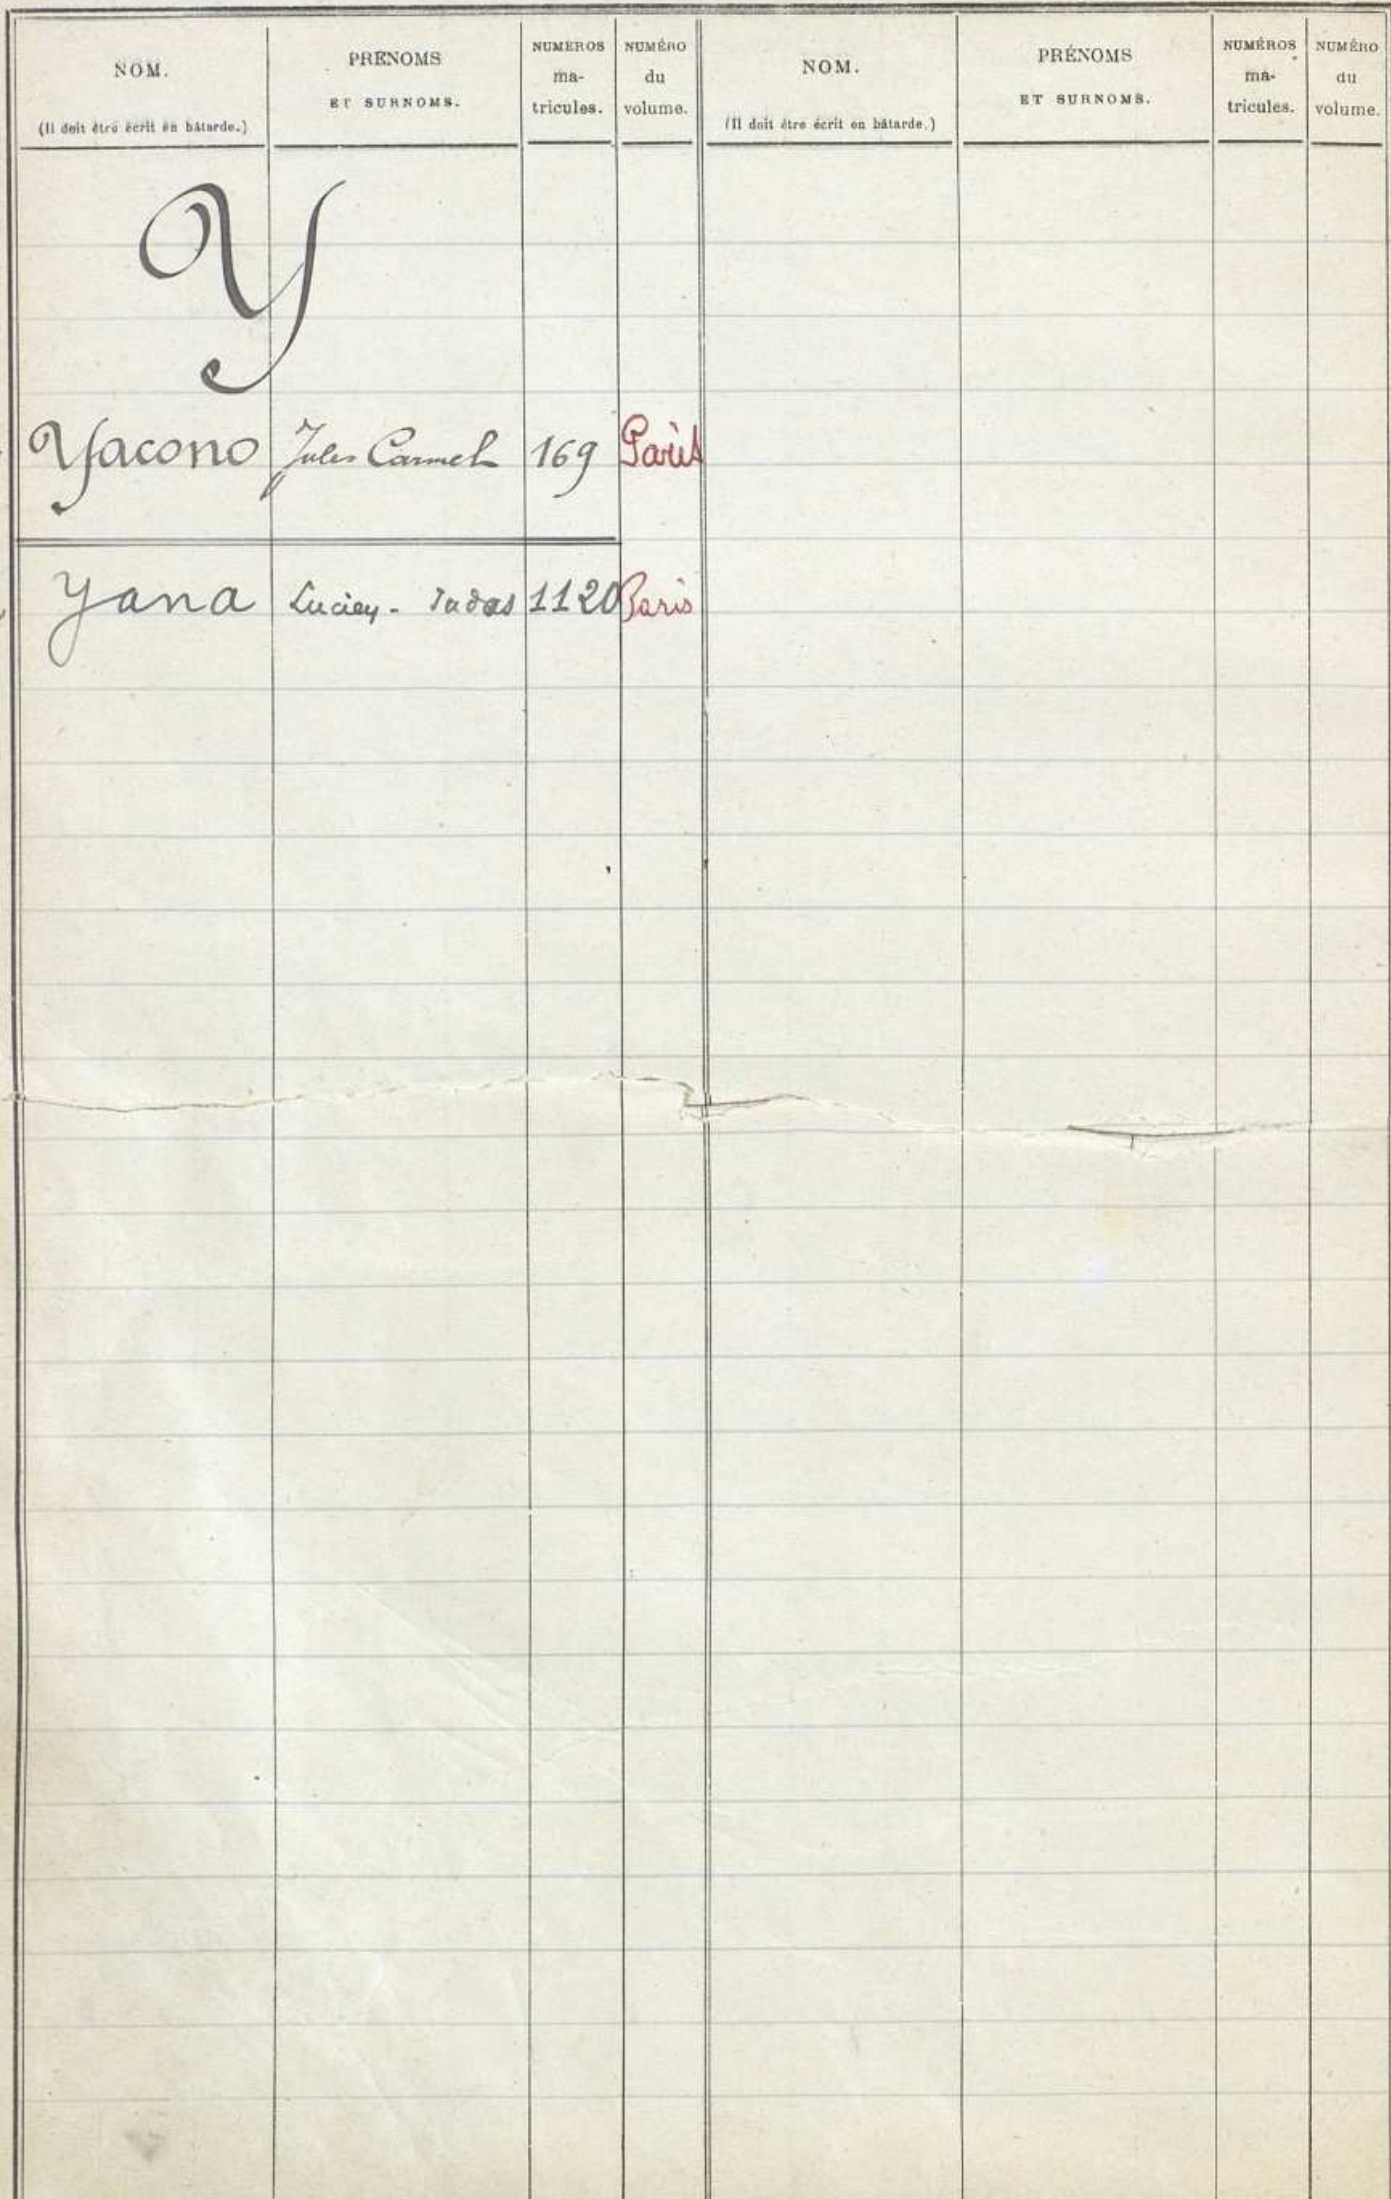 NOM.
(Il doit être écrit en bâtarde.)
PRÉNOMS
ET SURNOMS.
NUMÉROS
ma-
tricules.
NUMÉRO
du
volume.
NOM.
(Il doit être écrit en bâtarde.)
PRÉNOMS
ET SURNOMS.
NUMÉROS
ma-
tricules.
NUMÉRO
du
volume.
Y
Yacono Jules Carmel 169 Paris
Yana Lucien - Judas 1120 Paris